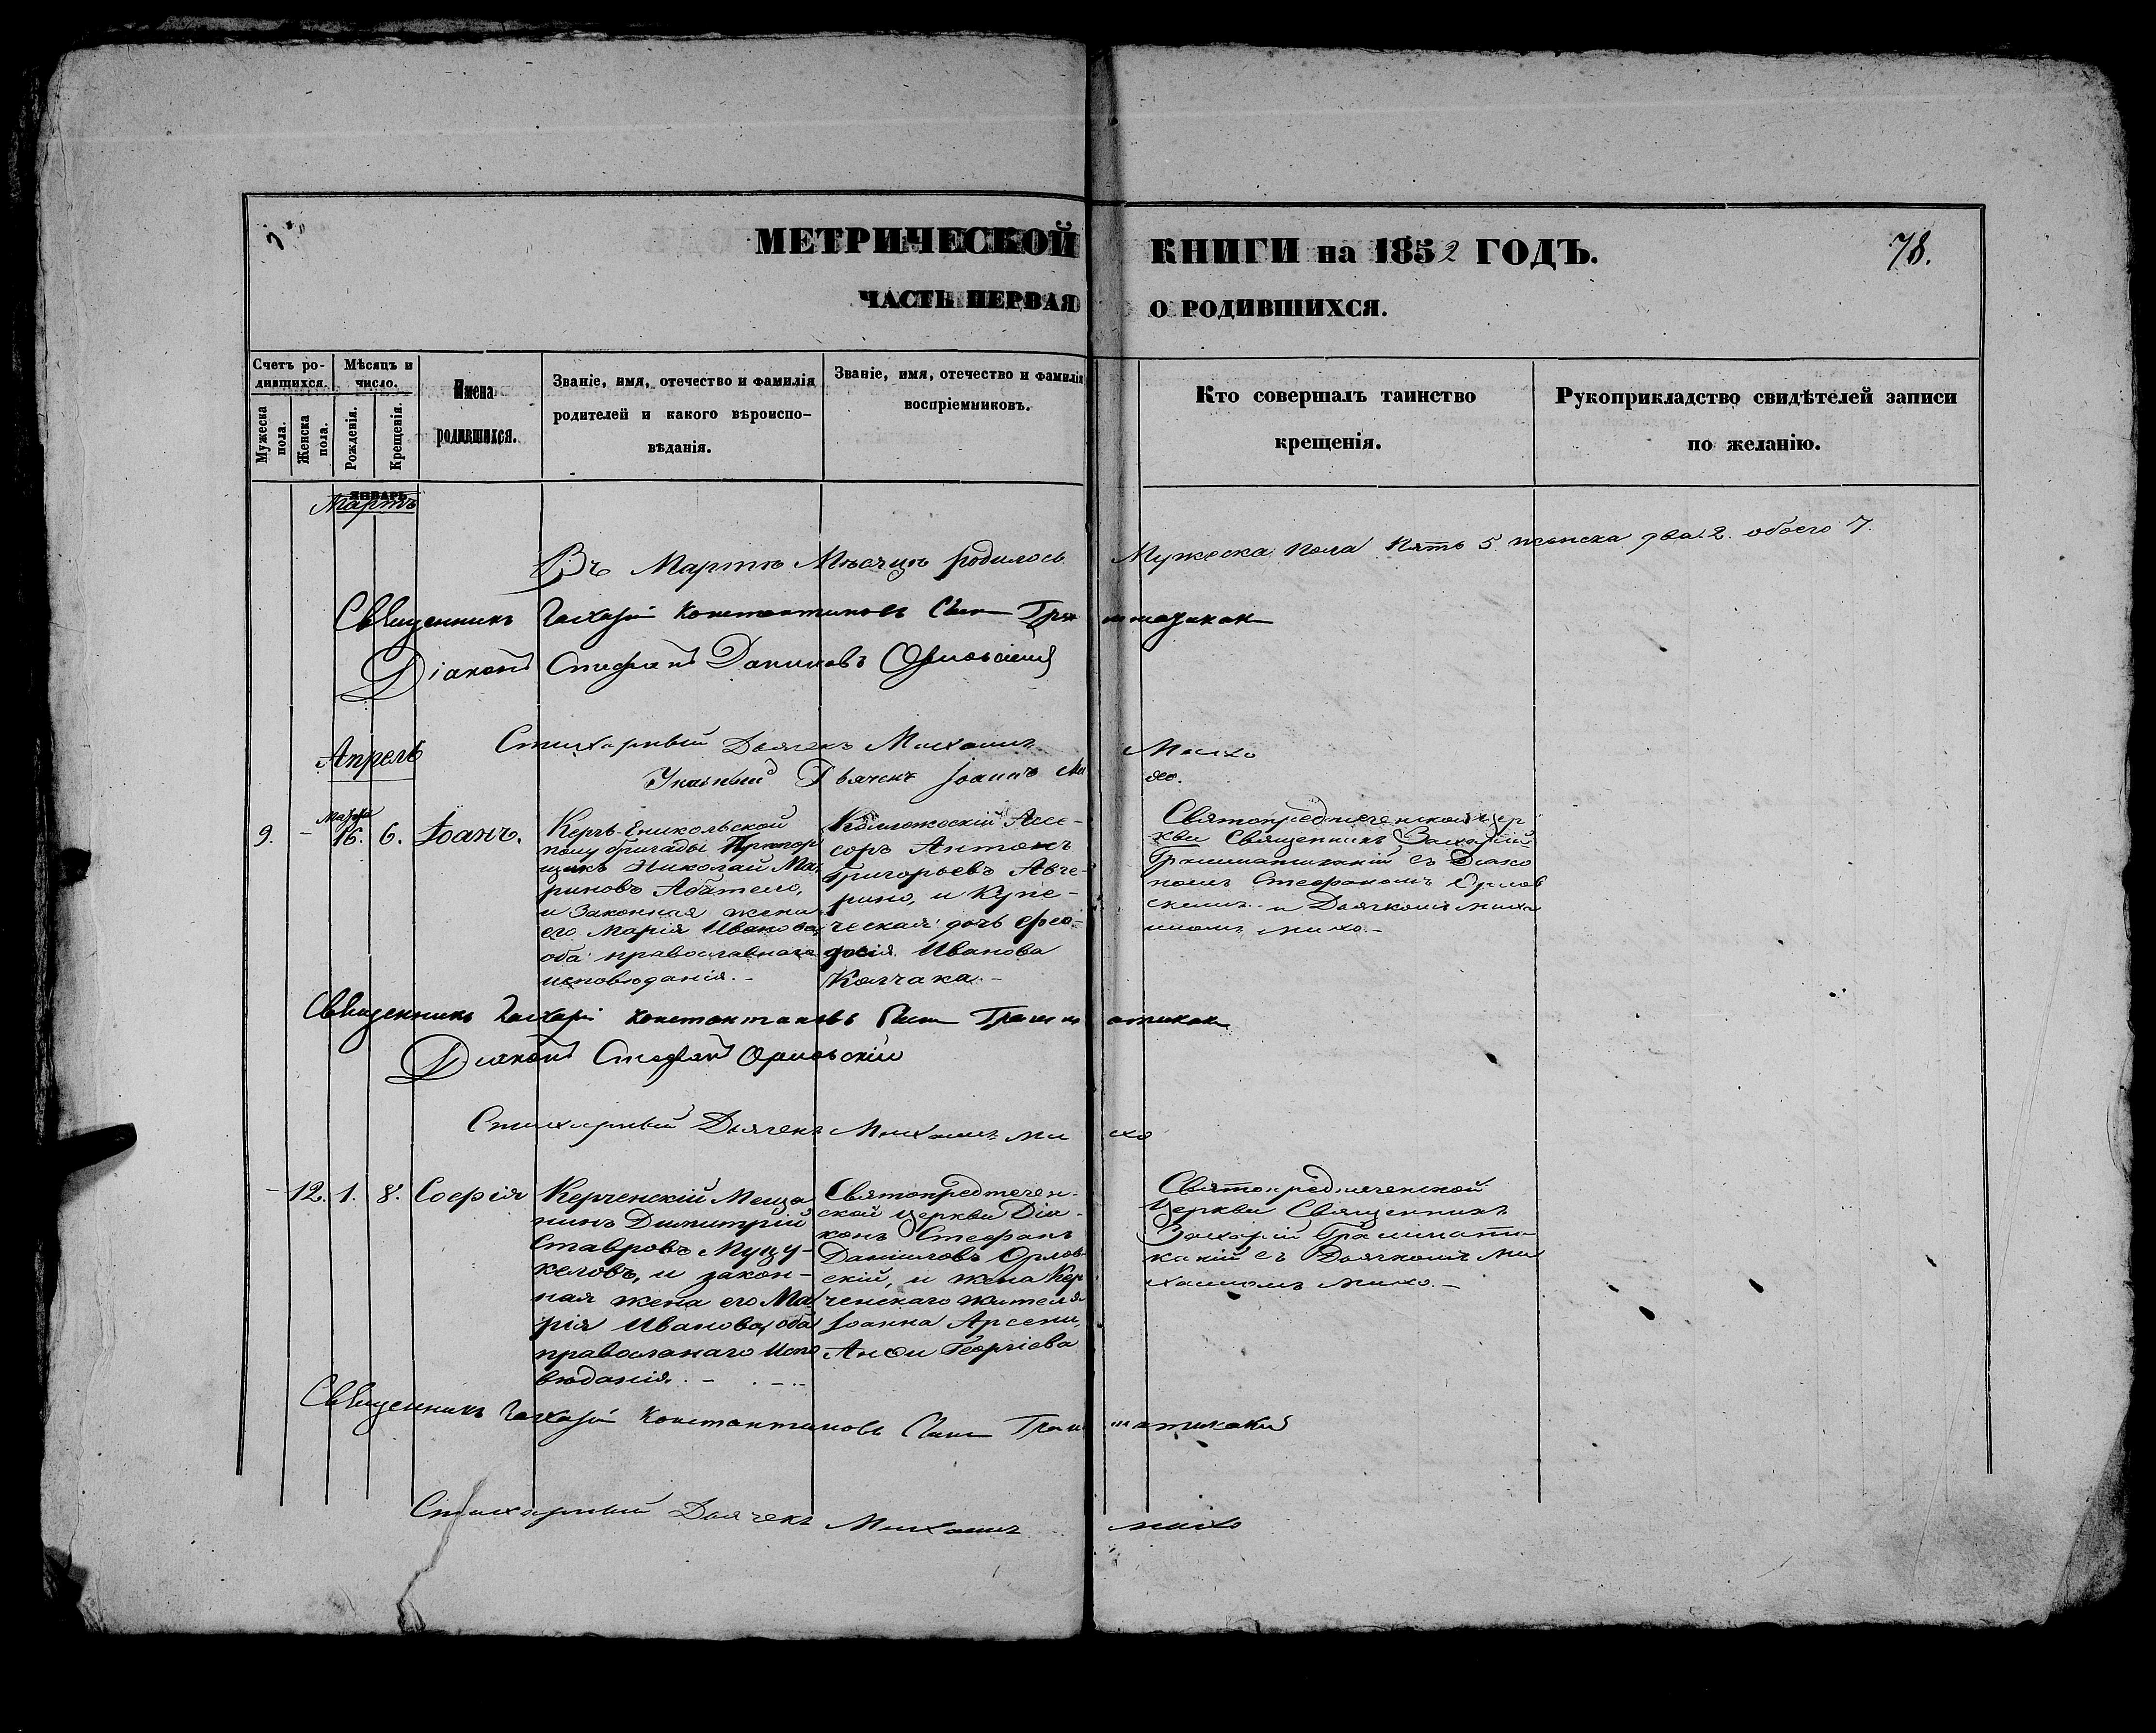 МЕТРИЧЕСКОЙ КНИГИ на 1852 ГОДЪ.
78.
ЧАСТЬ ПЕРВАЯ О РОДИВШИХСЯ.
Счетъ ро-
дившихся.
Мужеска пола.
Женска пола.
Мѣсяцъ и
число.
Рожденія.
Крещенія.
Имена
родившихся.
Званіе, имя, отечество и фамилія
родителей и какого вѣроиспо-
вѣданія.
Званіе, имя, отечество и фамилія
воспріемниковъ.
Кто совершалъ таинство
крещенія.
Рукоприкладство свидѣтелей записи
по желанію.
ЯНВАРЬ
Мартъ
Въ Мартѣ Мѣсяцѣ родилось Мужеска пола пять 5 женска два 2. обоего 7.
Священникъ Захарій Константиновъ Сынъ Грамматикаки
Діаконъ Стефанъ Даниловъ Орловскій
Апрель
Стихарный Дьячекъ Михаилъ Михо
Указный Дьячекъ Іоаннъ
Марта
9. - 16. 6. Іоанъ.
Керчь-Еникольской
полу бригады Прапор
щикъ Николай Ма
риновъ Абатело,
и Законная жена
его Марія Иванова,
оба православнаго
исповѣданія. -
Коллежскій Ассе-
соръ Антонъ
Григорьевъ Авге-
рино, и Купе-
ческая дочь Ѳео-
досія Иванова
Колчака. -
Святопредтеченской цер
кви Священникъ Захарій
Грамматикакій съ Діако
номъ Стефаномъ Орлов
скимъ и Дьячкомъ Миха
иломъ Михо. -
Священникъ Захарій Константиновъ Сынъ Грамматикаки
Діаконъ Стефанъ Орловскій
Стихарный Дьячекъ Михаилъ Михо
- 12. 1. 8. Софія
Керченскій Меща
нинъ Димитрій
Ставровъ Муцу-
келовъ, и закон-
ная жена его Ма
рія Иванова, оба
православнаго Испо
вѣданія. -
Святопредтечен-
ской церкви Діа-
конъ Стефанъ
Даниловъ Орлов-
скій, и жена Кер
ченскаго жителя
Іоанна Арсени,
Георгіева
Святопредтеченской
Церкви Священникъ
Захарій Граммати
какій съ Дьячкомъ Ми
хаиломъ Михо. -
Священникъ Захарій Константиновъ Сынъ Грамматикакій
Стихарный Дьячекъ Михаилъ Михо